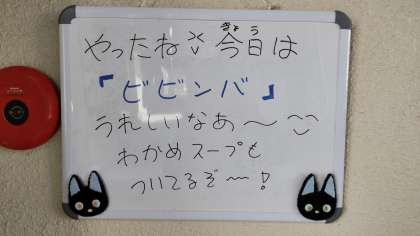 やったね 今日は
きょう
『ビビンバ』
うれしいなあ〜
わかめスープも
ついてるぞ〜!